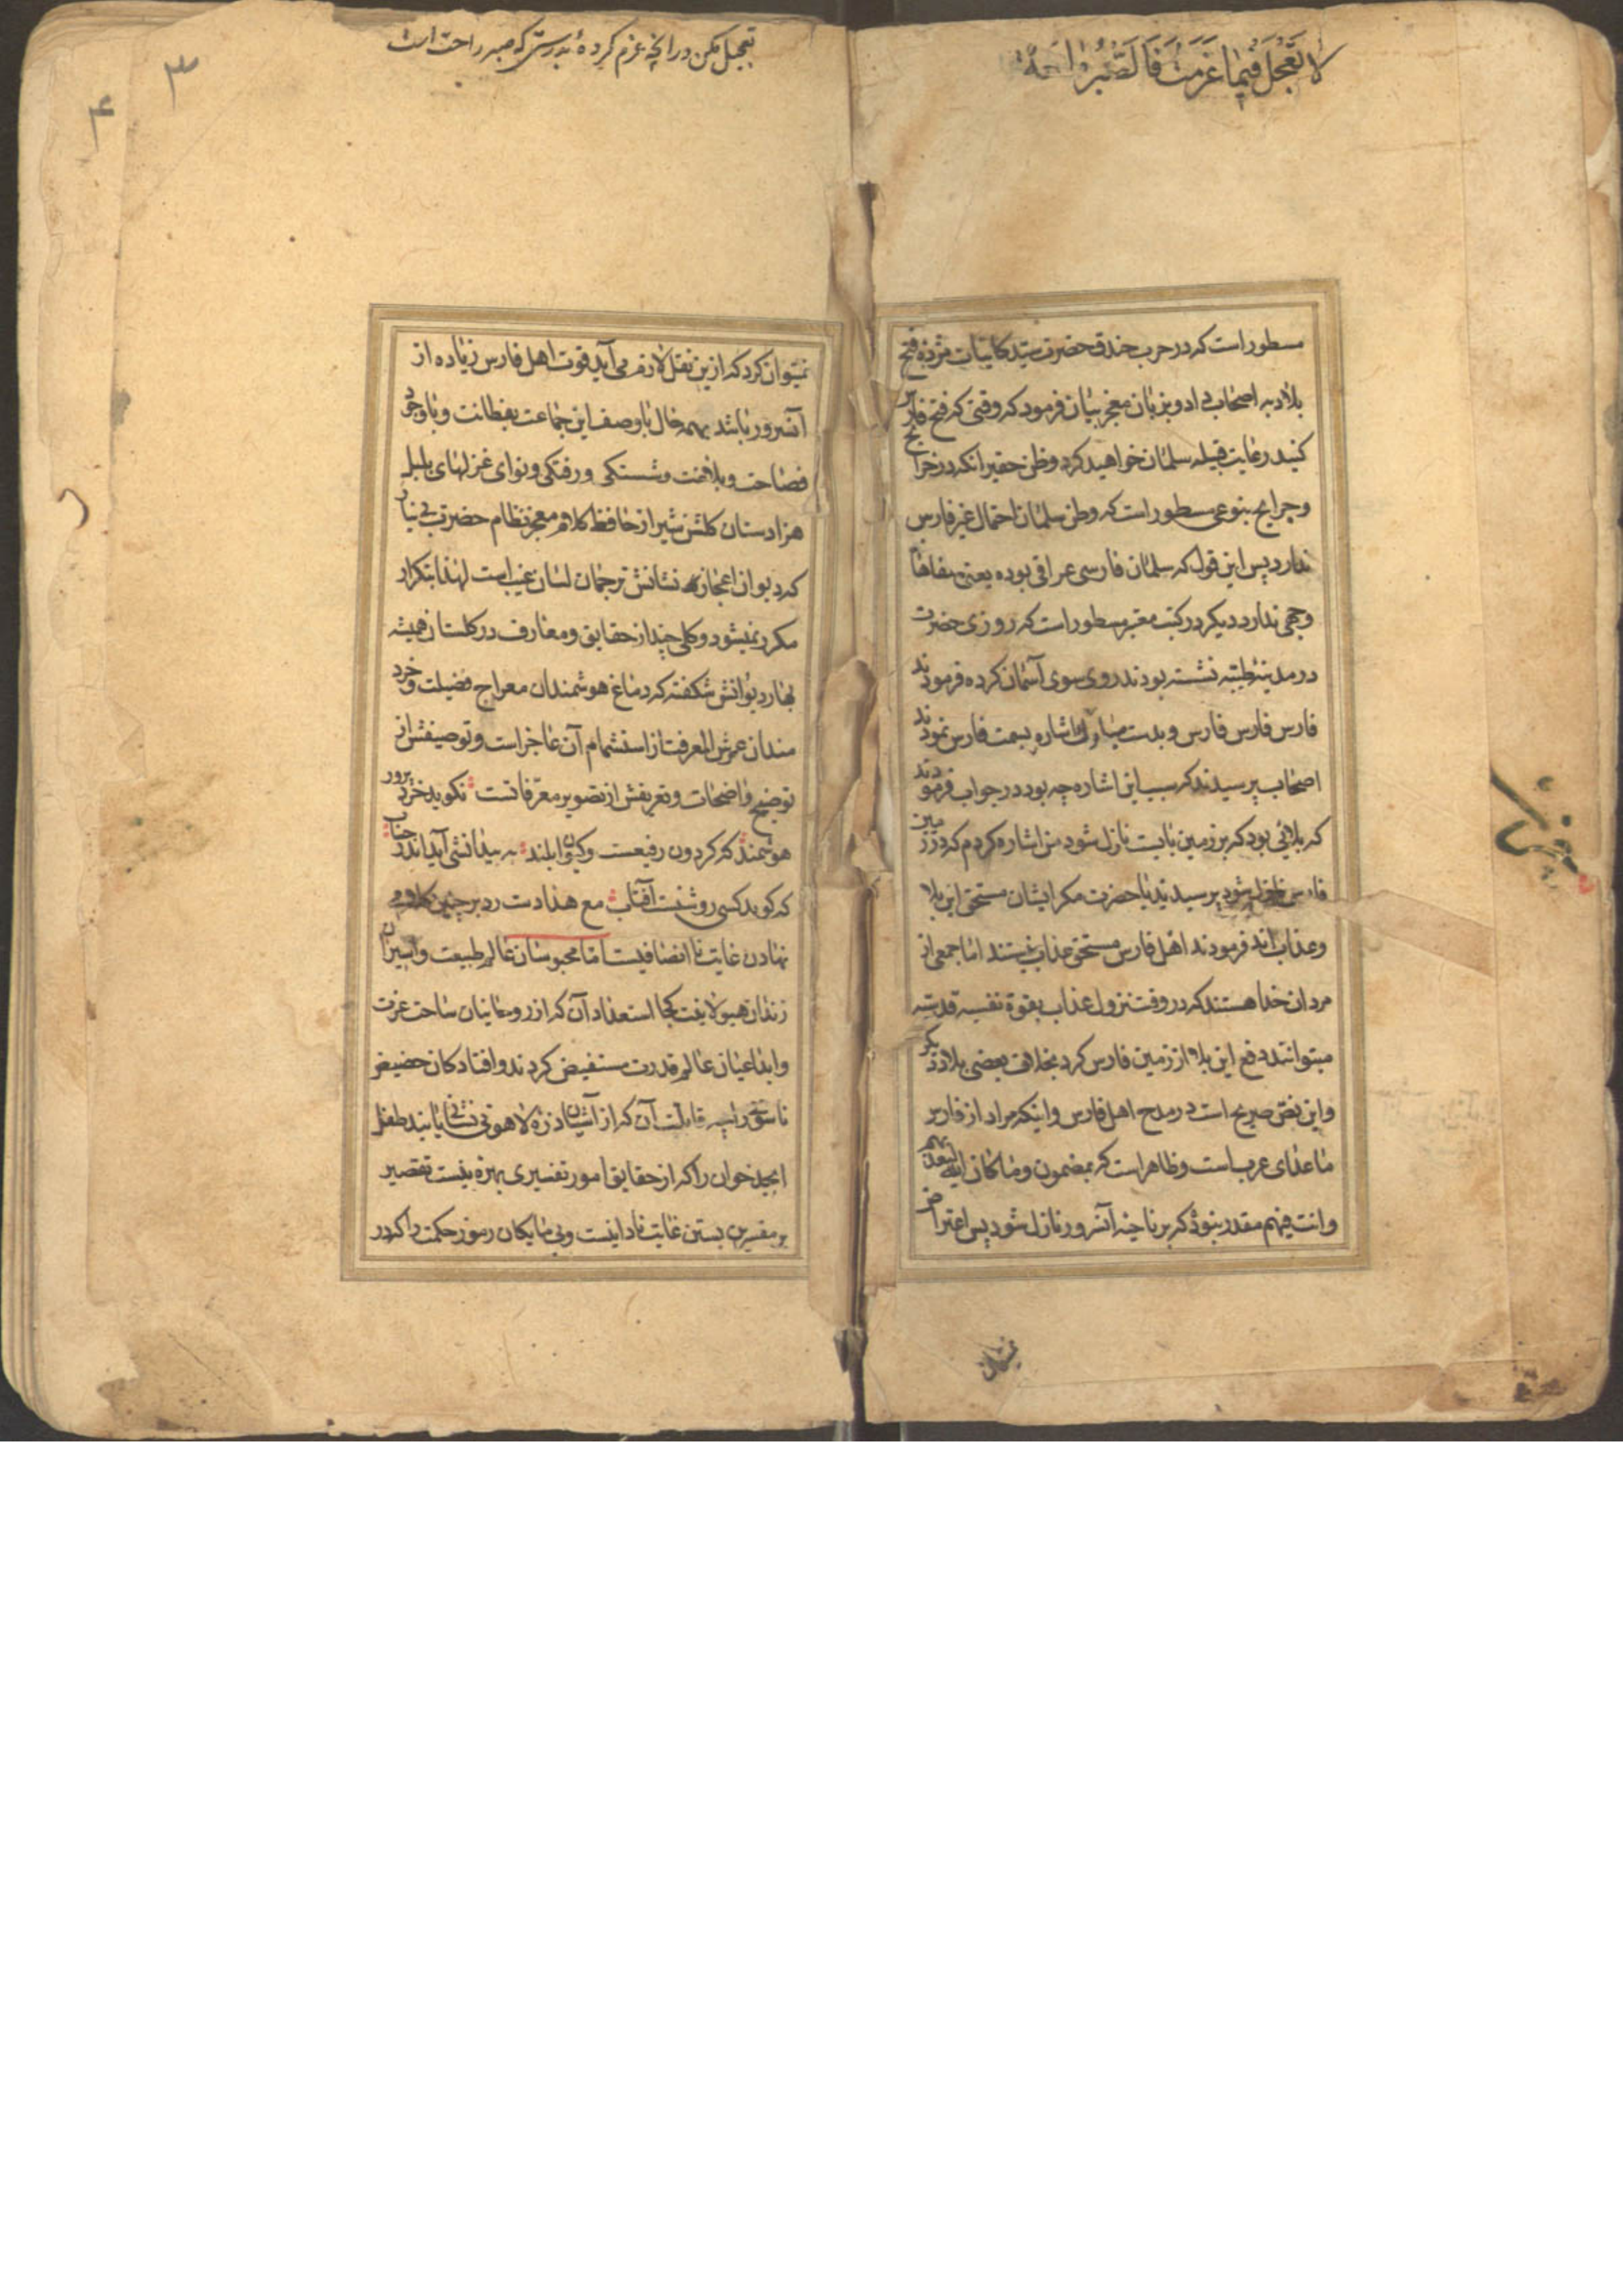 لا تعجل فیما عزمت فالصبر راحة
مسطور است که در حرب خندق حضرت سید کاینات مژدهٔ فتح
بلاد به اصحاب داد و بزبان معجز بیان فرمود که وقتی که فتح فارس
کنید رعایت قبیله سلمان خواهید کرد و ظن حقیر انکه در خرایج
و جرایح بنوعی مسطور است که وطن سلمان احتمال غیر فارس
ندارد پس این قول که سلمان فارسی عراقی بوده یعنی
وجهی ندارد دیگر در کتب معتبر مسطور است که روزی حضرت
در مدینه طیبه نشسته بودند روی سوی آسمان کرده فرمودند
فارس فارس فارس و بدست مبارک اشاره بسمت فارس نمودند
اصحاب پرسیدند که سبب این اشاره چه بود در جواب فرمودند
که بلائی بود که بر زمین بایست نازل شود من اشاره کردم که در زمین
فارس نازل شود پرسیدند یا حضرت مکر ایشان مستحق این بلا
و عذاب اند فرمودند اهل فارس مستحق عذاب نیستند اما جمعی از
مردان خدا هستند که در وقت نزول عذاب بقوة نفسیه قدسیه
میتوانند دفع این بلا از زمین فارس کرد بخلاف بعضی بلاد دیکر
و این نص صریح است در مدح اهل فارس و اینکه مراد از فارس
ما عدای عرب است و ظاهر است که بمضمون و ما کان الله لیعذبهم
و انت فیهم مقدر نبود که بر ناحیه آنسرور نازل شود پس اعتراض
نمیتوان
تعجیل مکن در انچه عزم کردهٔ بدرستی که صبر راحت است
۳
۴
نمیتوان کرد که ازین نقل لازم می آید قوت اهل فارس زیاده از
آنسرور باشد بهمه حال با وصف این جماعت بفطانت و با وجود
فصاحت و بلاغت و شستکی و رفتکی و نوای غزلهای بلبل
هزار دستان کلشن شیراز حافظ کلام معجز نظام حضرت بی نیاز
که دیوان اعجاز نشانش ترجمان لسان غیب است لهذا بتکرار
مکرر نمیشود و کلی چند از حقایق و معارف در کلستان همیشه
بهار دیوانش شکفته که دماغ هوشمندان معراج فضیلت و خرد
مندان عرش المعرفت از استشمام آن عاجز است و توصیفش از
توضیح واضحات و تعریفش از تصویر معرفاتست نکوید خرد پرور
هوشمند که کردون رفیعست و کیوان بلند به بیدانشی آید اندر حساب
که کوید کسی روشنست آفتاب مع هذا دست رد بر چنین کلامی
نهادن غایت نا انصافیست اما محبوسان عالم طبیعت و اسیران
زندان هیولا نیت کجا استعداد آن که از روحانیان ساحت عزت
و ابداعیان عالم قدرت مستفیض کردند و افتادکان حضیض
ناسوتی را چه قابلیت آن که از آشیان ذروهٔ لاهوتی نشانی یابند طفل
ابجد خوان را که از حقایق امور تفسیری بهره نیست تقصیر
بر مفسرین بستن غایت نادانیست و بی مایکان رموز حکمت را که در